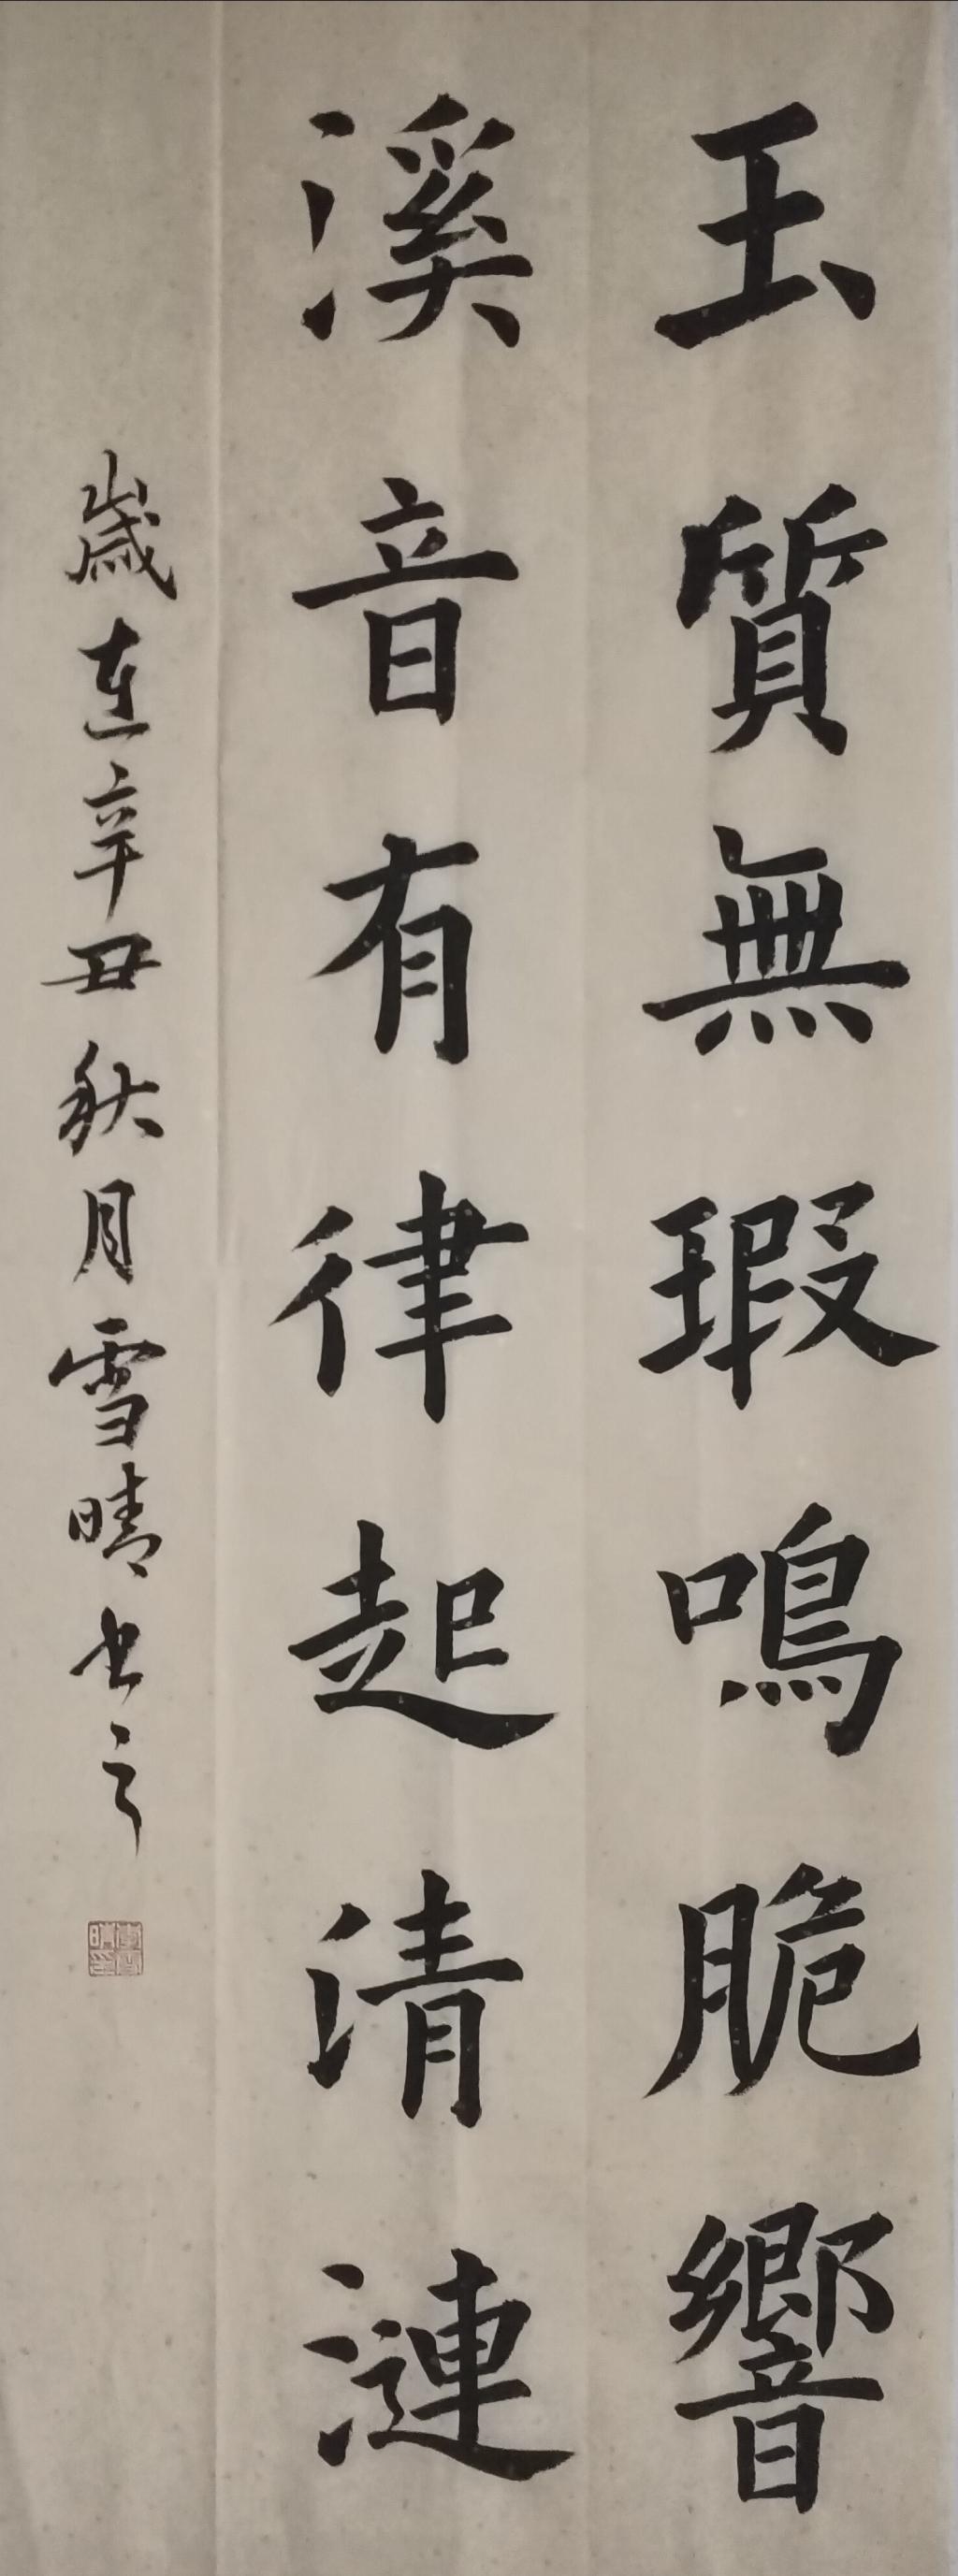 玉質無瑕鳴脆響
溪音有律起清漣
歲在辛丑秋月雪晴書之